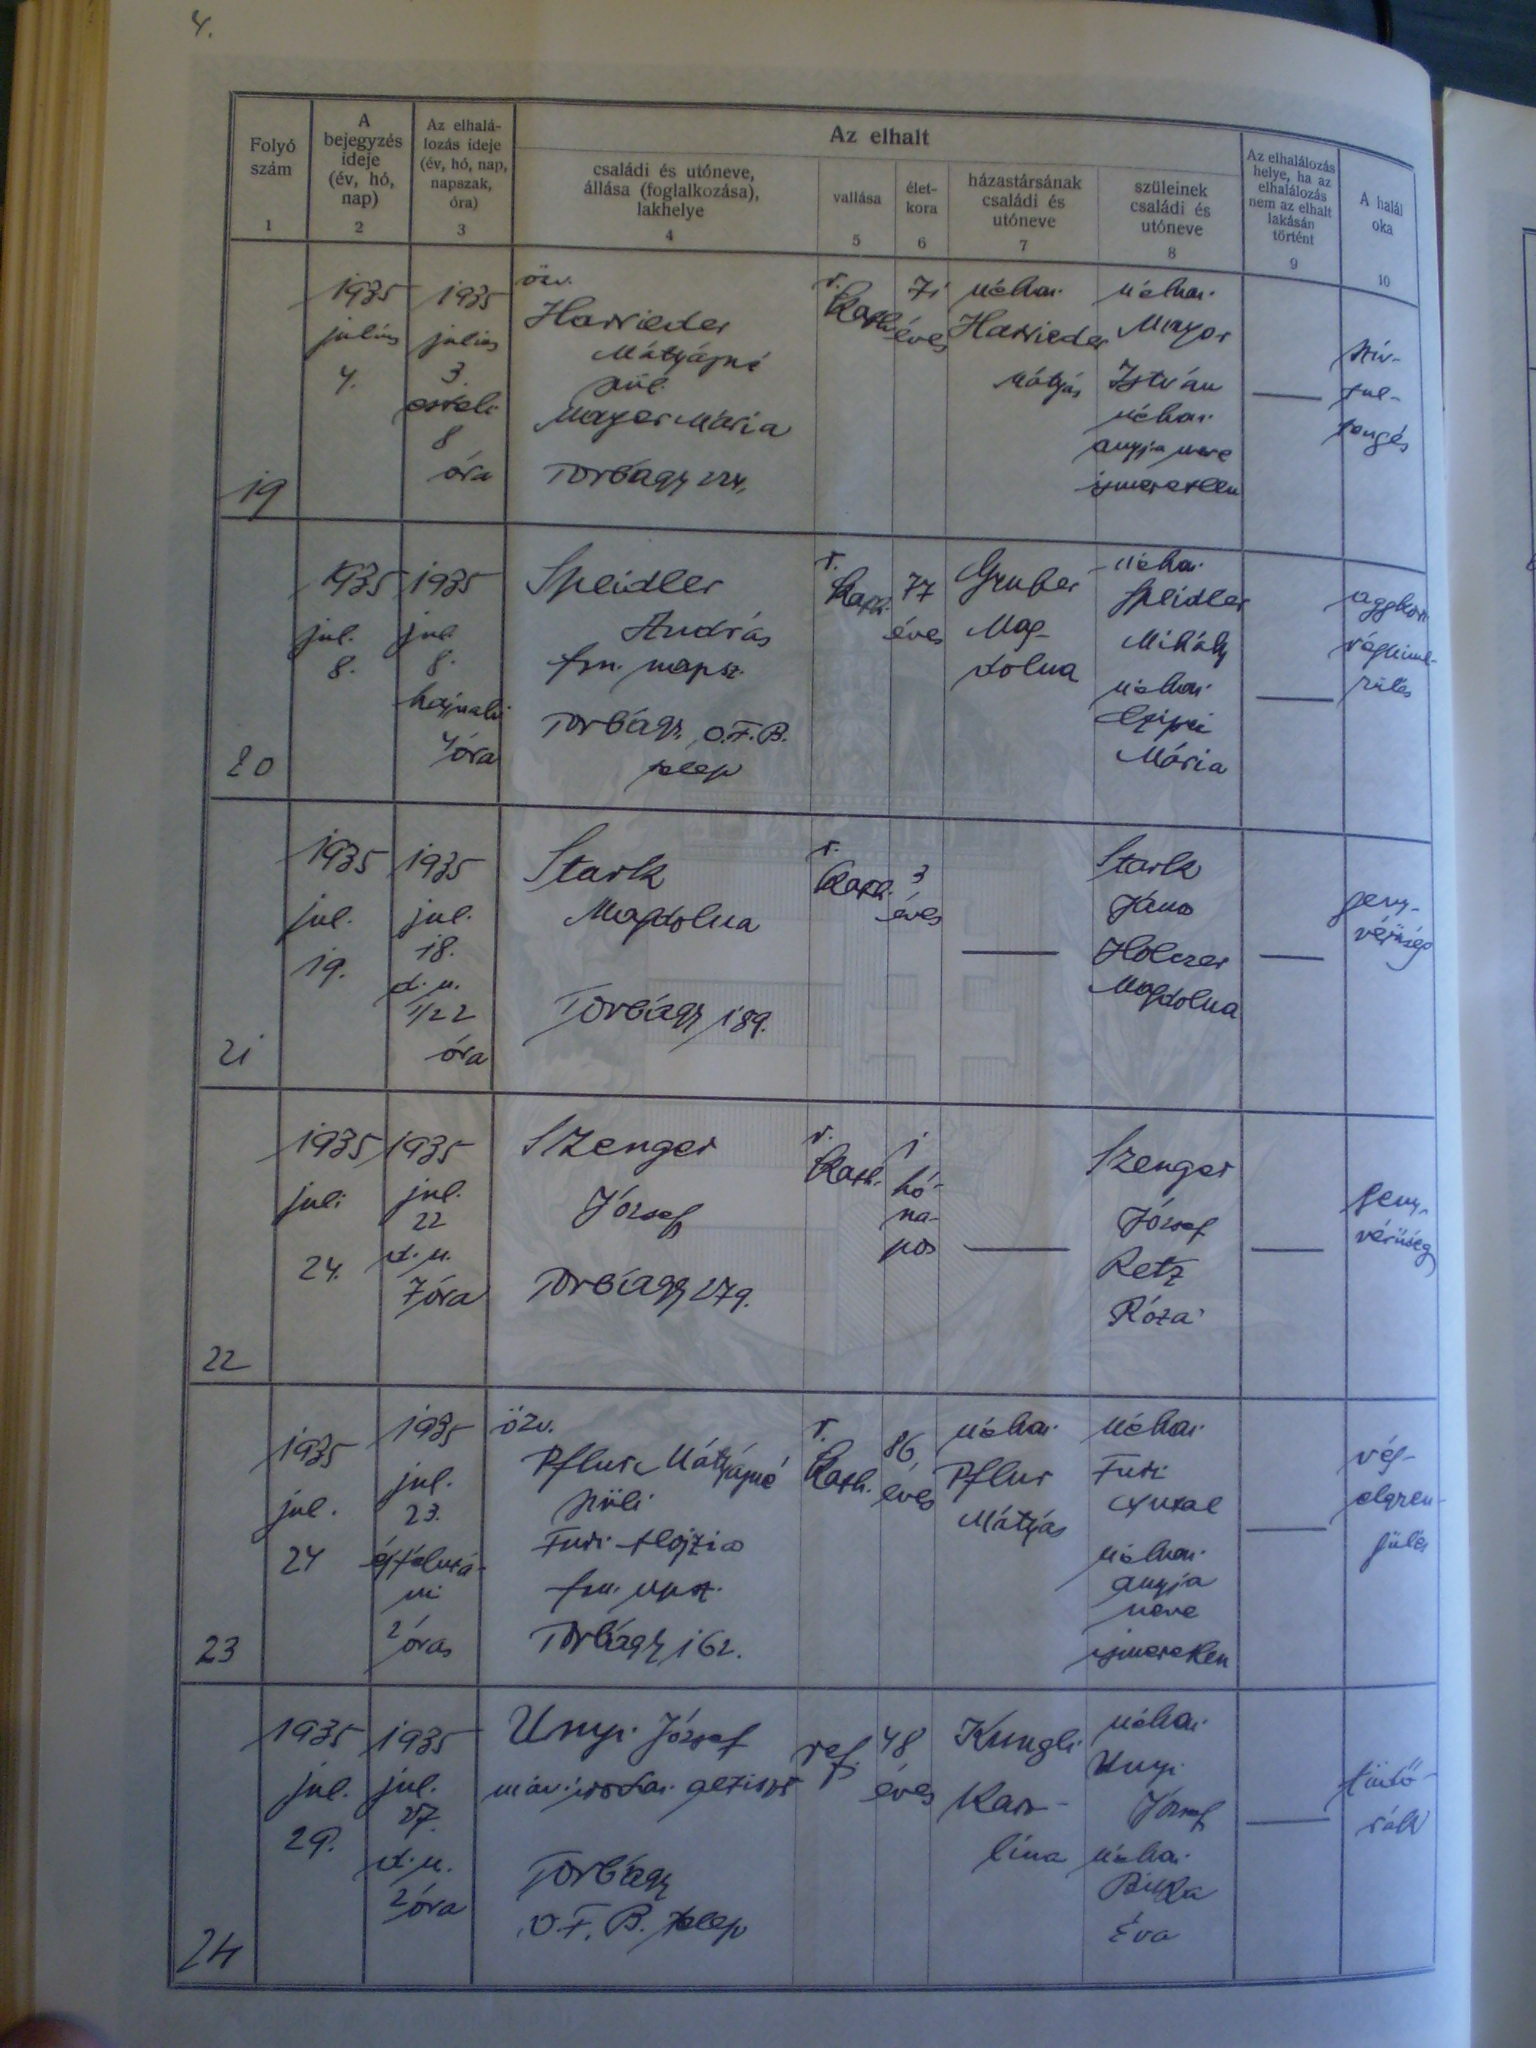 4.
Folyó
szám
1
A
bejegyzés
ideje
(év, hó,
nap)
2
Az elhalá-
lozás ideje
(év, hó, nap,
napszak,
óra)
3
Az elhalt
családi és utóneve,
állása (foglalkozása),
lakhelye
4
vallása
5
élet-
kora
6
házastársának
családi és
utóneve
7
szüleinek
családi és
utóneve
8
Az elhalálozás
helye, ha az
elhalálozás
nem az elhalt
lakásán
történt
9
A halál
oka
10
19
1935
július
4.
1935
július
3.
esteli
8
óra
özv.
Harrieder
Mátyásné
szül.
Mayer Mária
Torbágy 224.
r.
kath.
71
éves
néhai
Harrieder
Mátyás
néhai
Mayer
István
néhai
anyja neve
ismeretlen
szív-
20
1935
jul.
8.
1935
jul.
8.
hajnali
4 óra
Speidler
András
fm. napsz.
Torbágy, O.F.B.
telep
r.
kath.
77
éves
Gruber
Mag-
dolna
néhai
Speidler
Mihály
néhai
Mária
aggkori
végkime-
rülés
21
1935
jul.
19.
1935
jul.
18.
d. u.
1/2 2
óra
Stark
Magdolna
Torbágy 189.
r.
kath.
3
éves
Stark
János
Holczer
Magdolna
geny-
vérüség
22
1935
juli
24.
1935
jul.
22
d. u.
7 óra
Szenger
József
Torbágy 279.
r.
kath.
1
hó-
na-
pos
Szenger
József
Retz
Róza
geny-
vérüség
23
1935
jul.
24
1935
jul.
23.
éjfélutá-
ni
2 óra
özv.
Pflur Mátyásné
szül.
Furi Alojzia
fm. npsz.
Torbágy 162.
r.
kath.
86
éves
néhai
Pflur
Mátyás
néhai
Furi
Antal
néhai
anyja
neve
ismeretlen
vég-
elgyen-
gülés
24
1935
jul.
29.
1935
jul.
27.
d. u.
2 óra
Unyi József
máv. irodai altiszt
Torbágy
O.F.B. telep
ref.
48
éves
Kungli
Karo-
lina
néhai
Unyi
József
néhai
Éva
tüdő-
rák